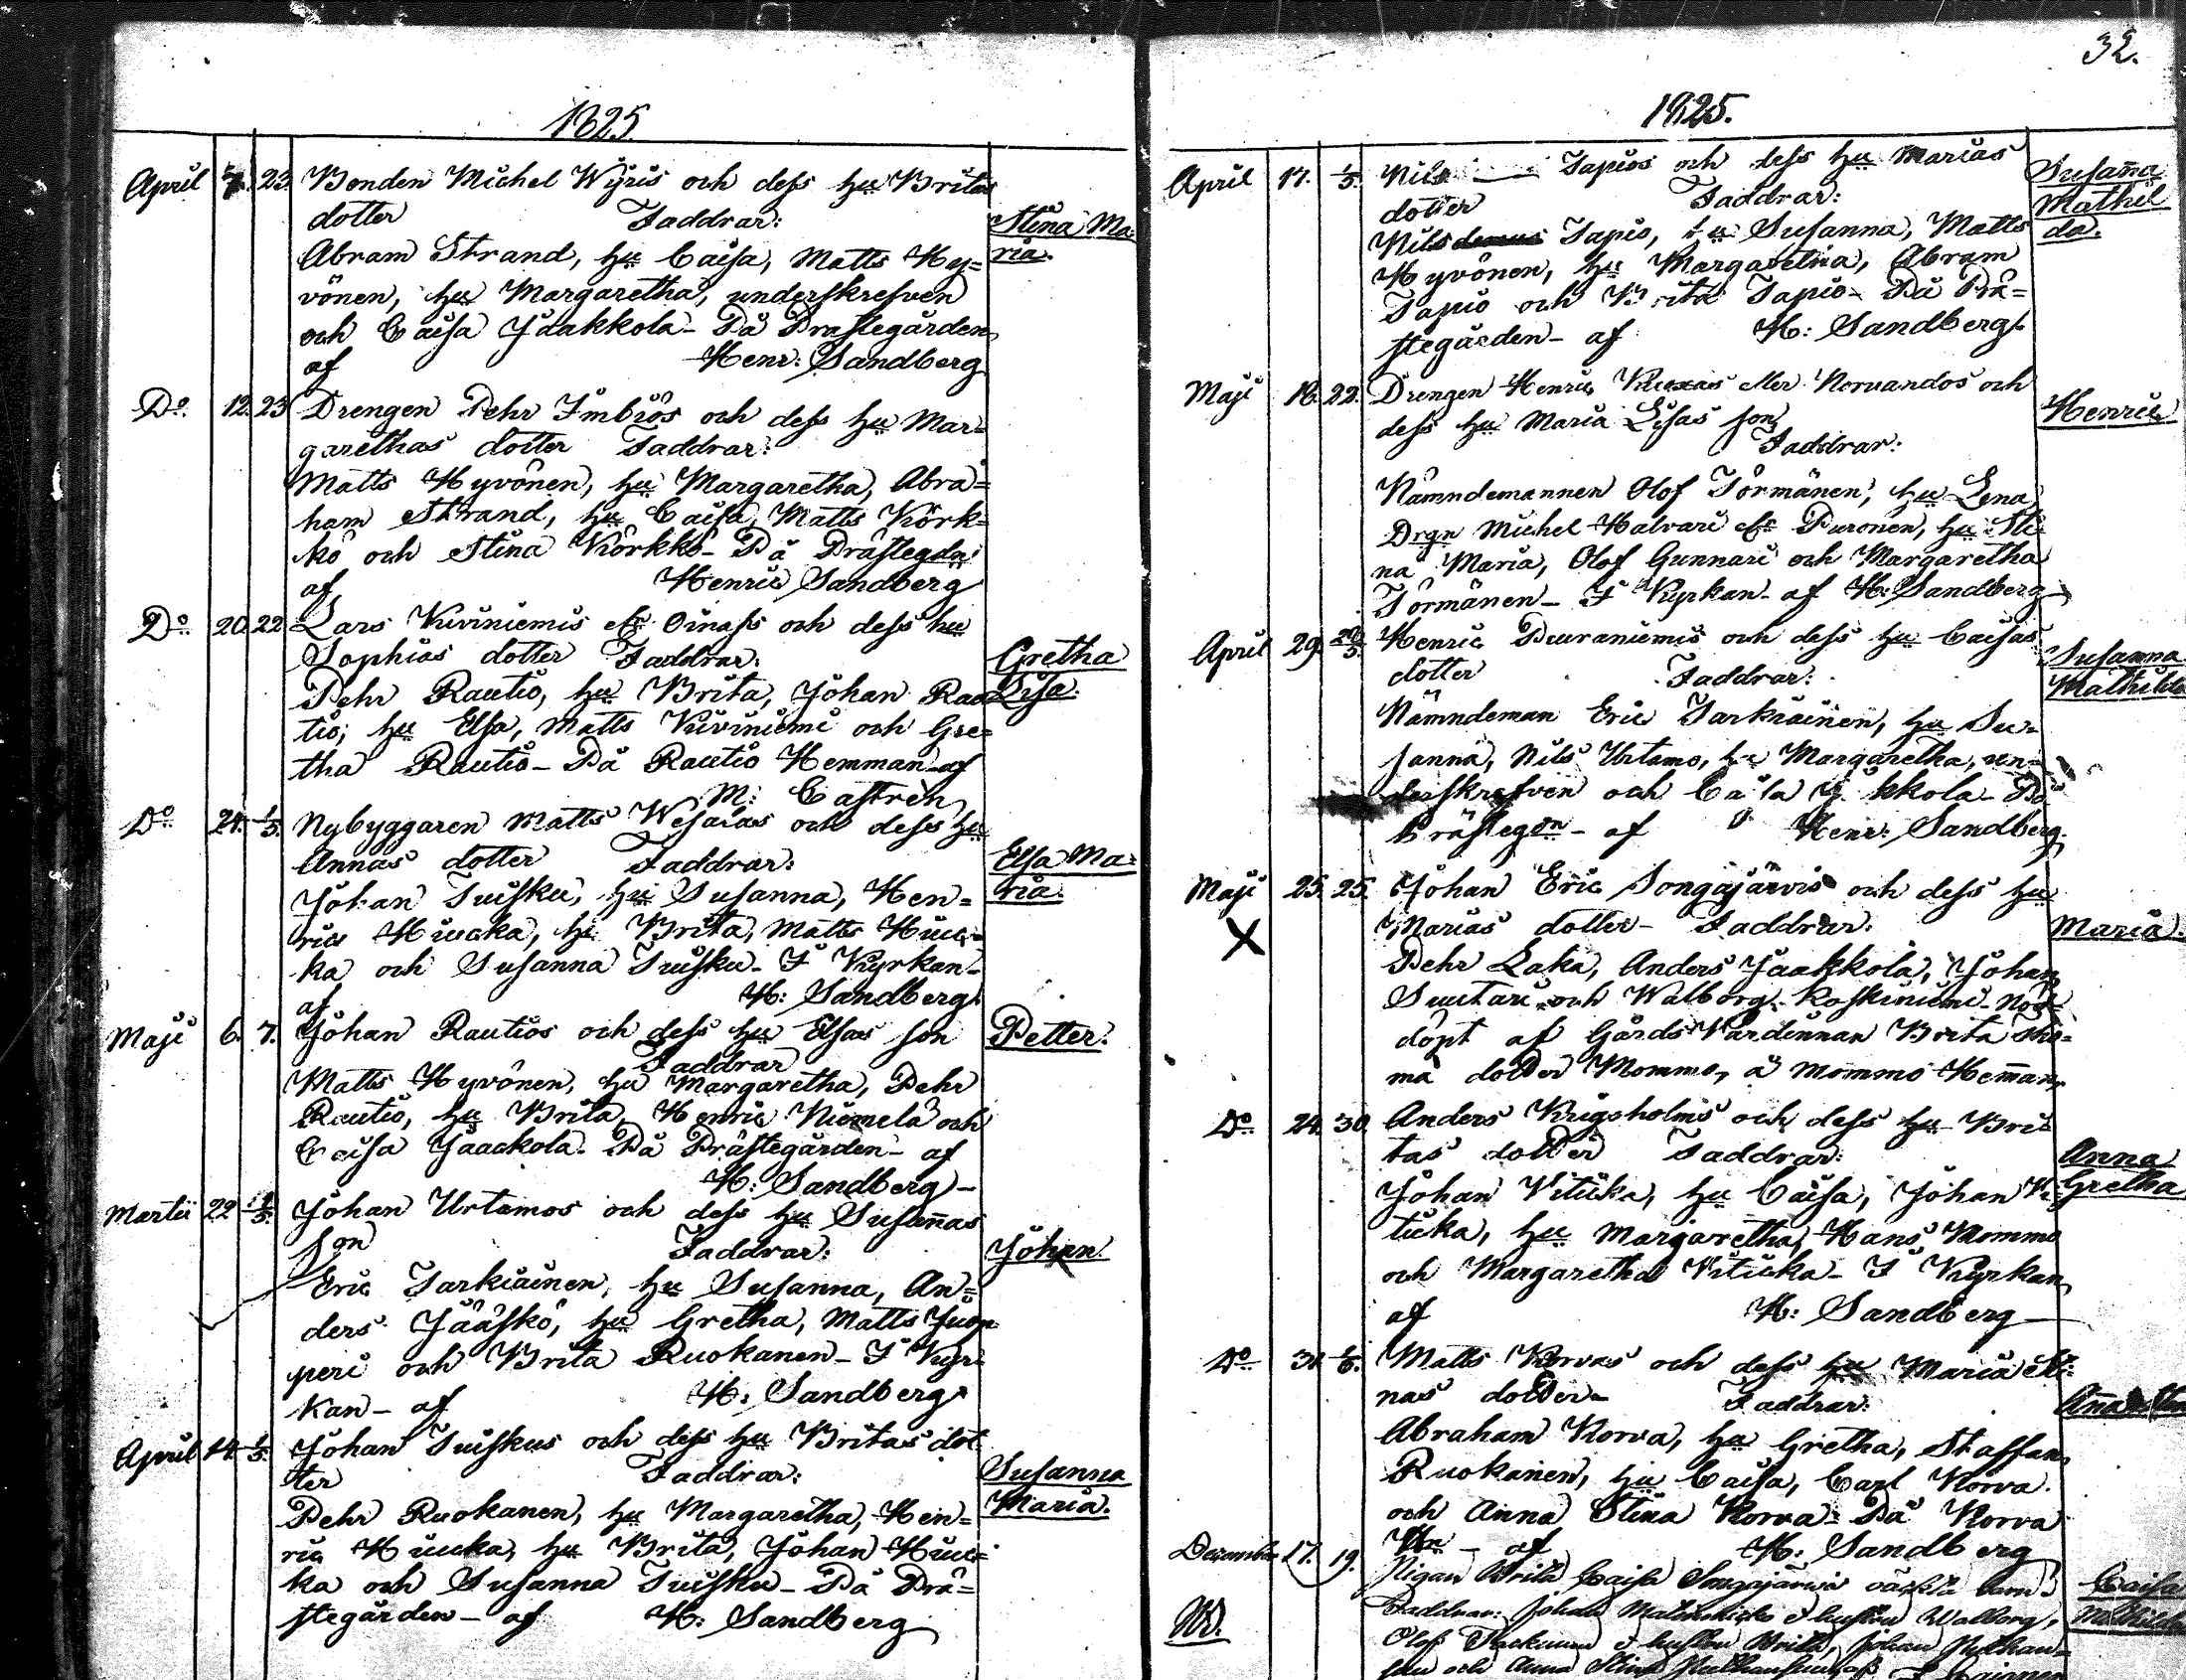 32.
1825.
April 7. 23. Bonden Michel Wÿris och dess hu Britas
dotter Faddrar:
Stina Ma=
ria.
Abram Strand, hu Caisa, Matts Hy=
vönen, hu Margaretha, underskrefven
och Caisa Jaakkola - På Prästegården
af Henr: Sandberg
Do. 12. 23 Drengen Pehr Imbiös och dess hu Mar=
garethas dotter Faddrar:
Matts Hyvönen, hu Margaretha, Abra=
ham Strand, hu Caisa, Matts Körk=
kö och Stina Körkkö - På Prästegdn
af Henric Sandberg
Do. 20. 22 Lars Kiviniemis elr Oinass och dess hu
Sophias dotter Faddrar:
Gretha
Lisa.
Pehr Rautio, hu Brita, Johan Rau
tio, hu Elsa, Matts Kiviniemi och Gre=
tha Rautio - På Rautio Hemman - af
M: Castrén
Do 24. 1/5. Nybyggaren Matts Wesaras och dess hu
Annas dotter Faddrar:
Elsa Ma=
ria.
Johan Tuisku, hu Susanna, Hen=
ric Hiucka, hu Brita, Matts Hiuc=
ka och Susanna Tuisku - I Kyrkan -
af H: Sandberg.
Maji 6. 7. Johan Rautios och dess hu Elsas son Petter.
Faddrar
Matts Hyvönen, hu Margaretha, Pehr
Rautio, hu Brita, Henric Niemelä och
Caisa Jaackola. På Prästegården - af
H: Sandberg -
Martii 22 1/5. Johan Urtamos och dess hu Susannas
son Faddrar: Johan
Eric Tarkiainen, hu Susanna, An=
ders Jääskö, hu Gretha, Matts Juop
peri och Brita Ruokanen - I Kyr=
kan - af H: Sandberg
April 14. 1/5. Johan Tuiskus och dess hu Britas dot
ter Faddrar:
Susanna
Maria.
Pehr Ruokanen, hu Margaretha, Hen=
ric Hiucka, hu Brita, Johan Hiuc=
ka och Susanna Tuisku - På Prä=
stegården - af H: Sandberg
1825.
April 17. 1/5. Nils Tapios och dess hu Marias
dotter Faddrar:
Susanna
Mathil
da.
Nils Tapio, hu Susanna, Matts
Hyvönen, hu Margaretha, Abram
Tapio och Brita Tapio - På Prä=
stegården - af H: Sandberg.
Maji 18. 22. Drengen Henric eller Norvandos och
dess hu Maria Lisas son Henric
Faddrar:
Nämndemannen Olof Törmänen, hu Lena
Drgn Michel Halvari elr Puronen, hu Sti
na Maria, Olof Gunnari och Margaretha
Törmänen - I Kyrkan - af H: Sandberg -
April 29. Henric Puuraniemis och dess hu Caisas
dotter Faddrar:
Susanna
Mathilda
Nämndeman Eric Tarkiainen, hu Su=
sanna, Nils Urtamo, hu Margaretha, un=
derskrefven och
Prästegdn - af Henr: Sandberg.
Maji 25. 25. Johan Eric Songajärvis och dess hu
X Marias dotter - Faddrar: Maria.
Pehr Laka, Anders Jaakkola, Johan
Suutari och Walborg Koskiniemi - Nöd
döpt af Gårds Värdinnan Brita Tho=
mä dotter Mommo, å Mommo Heman.
Do. 24. 30. Anders Krigsholms och dess hu Bri
tas dotter Faddrar:
Anna
Gretha
Johan Viticka, hu Caisa, Johan Vi
ticka, hu Margaretha, Hans Mommo
och Margaretha Viticka - I Kyrkan,
af H: Sandberg
Do 31. 1/6. Matts Korvas och dess hu Maria Sti
nas dotter - Faddrar:
Anna
Abraham Korva, hu Gretha, Staffan
Ruokanen, hu Caisa, Carl Korva
och Anna Stina Korva. På Korva
Hn - af H: Sandberg
December 17. 19. Pigan Brita Caisa Songajärwis oäckta barn
Caisa
Mathilda
Faddrar: Johan hustru Walborg,
Olof hustru Brita, Johan
och Anna Stina